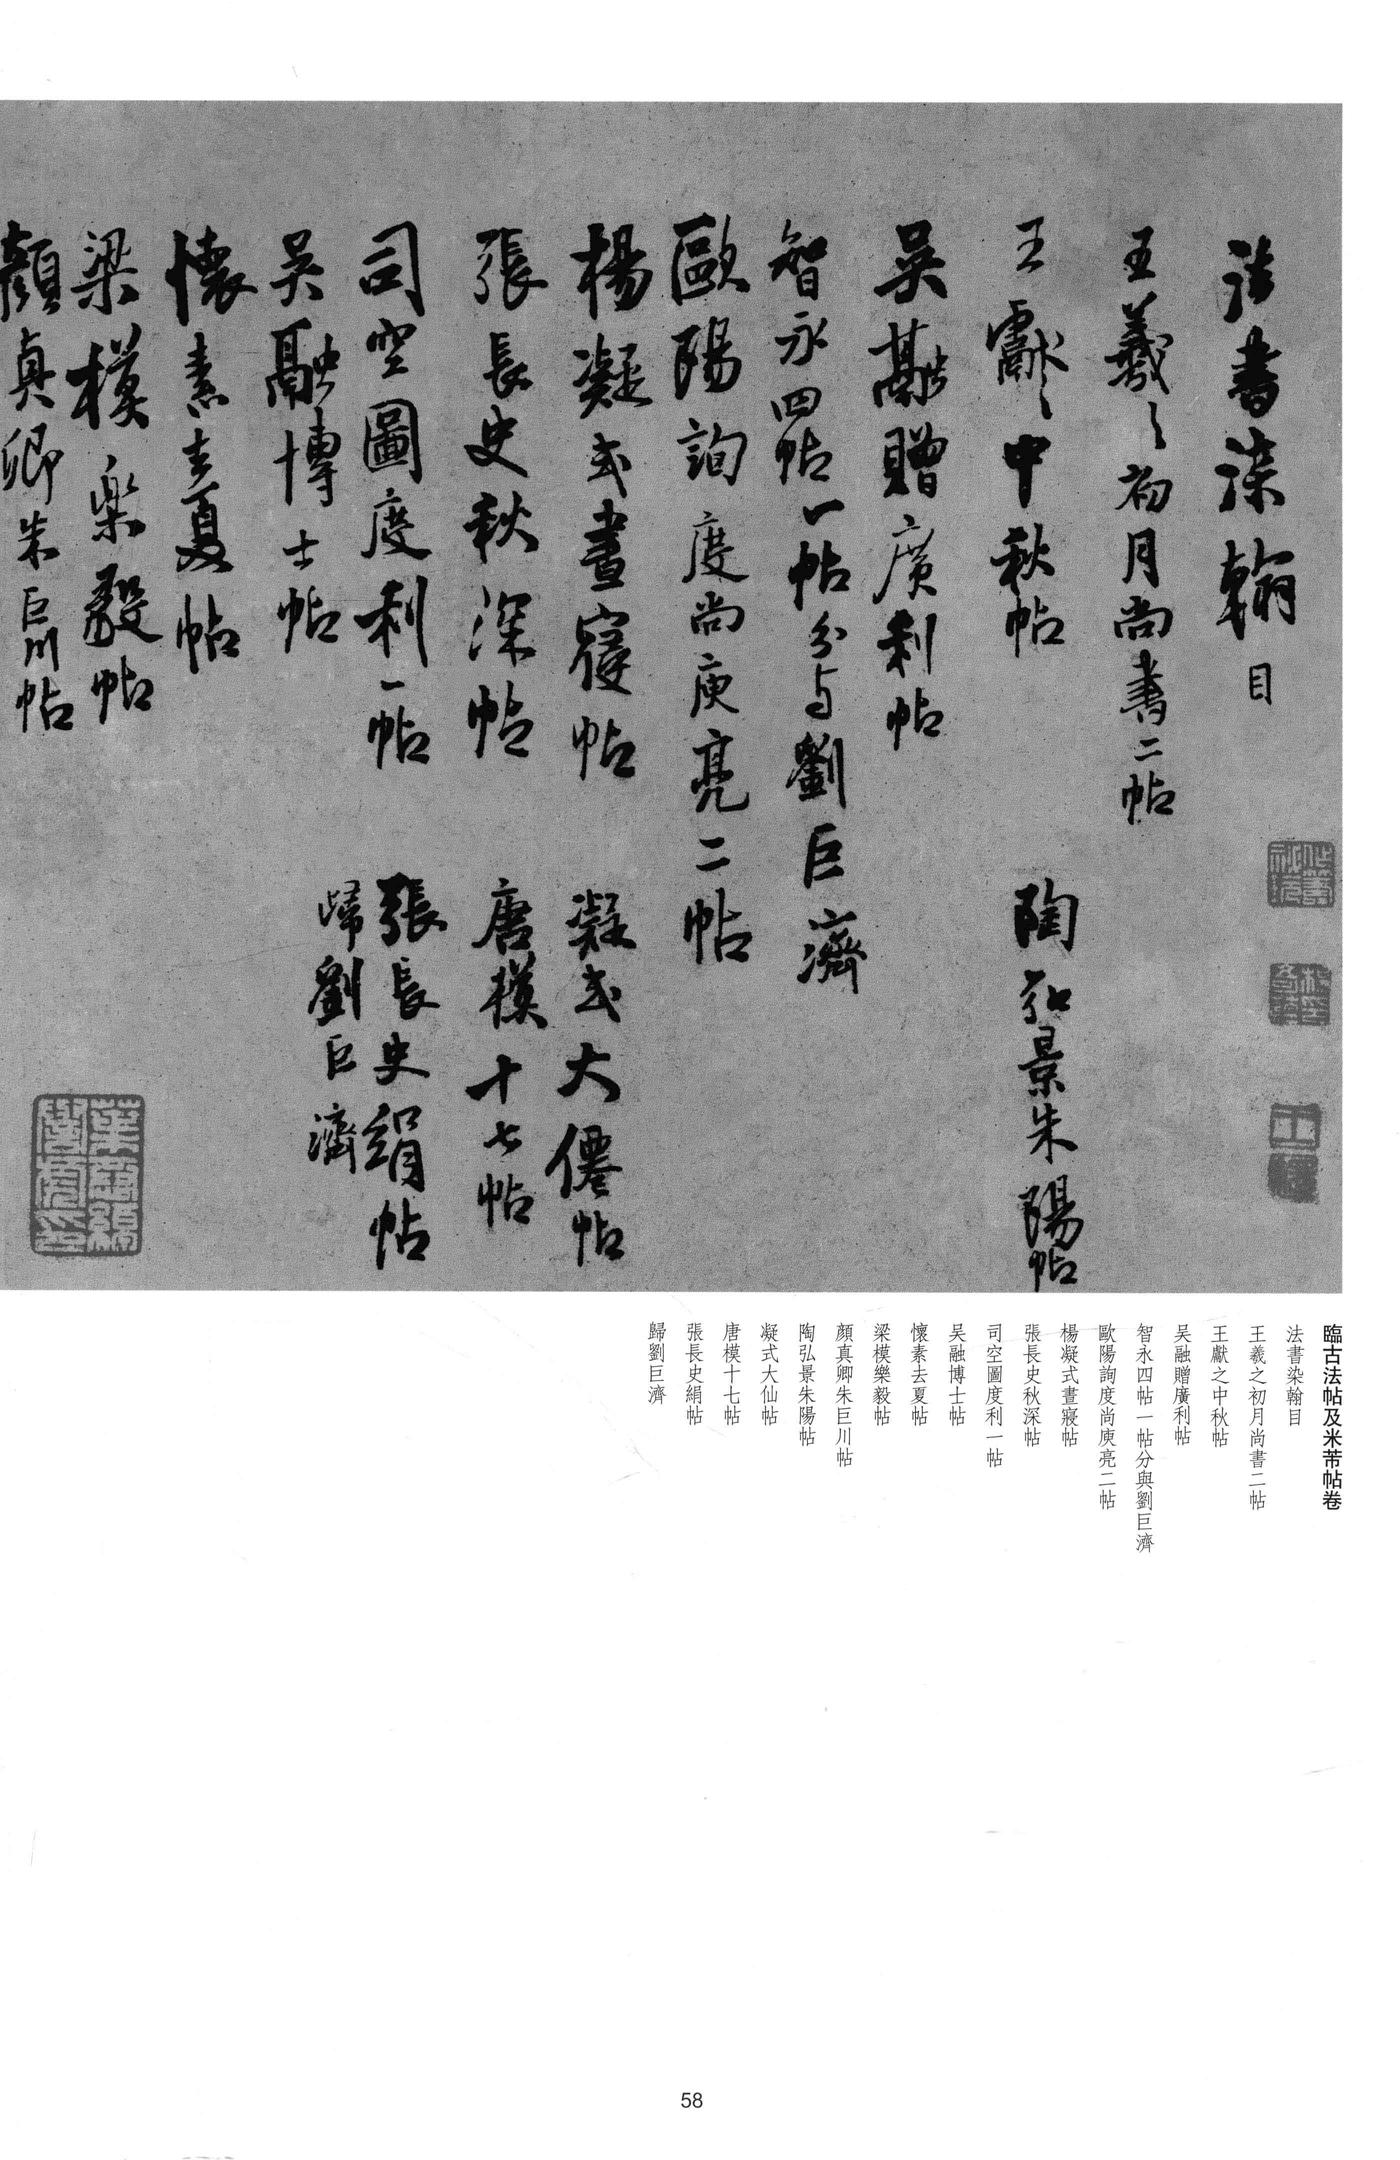 法書染翰目
王羲之初月尚書二帖
王獻之中秋帖
陶弘景朱陽帖
吳融贈廣利帖
智永四帖一帖分与劉巨濟
歐陽詢度尚庾亮二帖
楊凝式晝寢帖
凝式大僊帖
張長史秋深帖
唐模十七帖
司空圖度利一帖
張長史絹帖
歸劉巨濟
吳融博士帖
懷素去夏帖
梁模樂毅帖
顏真卿朱巨川帖
臨古法帖及米芾帖卷
法書染翰目
王羲之初月尚書二帖
王獻之中秋帖
吴融贈廣利帖
智永四帖一帖分與劉巨濟
歐陽詢度尚庾亮二帖
楊凝式晝寢帖
張長史秋深帖
司空圖度利一帖
吴融博士帖
懷素去夏帖
梁模樂毅帖
顏真卿朱巨川帖
陶弘景朱陽帖
凝式大仙帖
唐模十七帖
張長史絹帖
歸劉巨濟
58